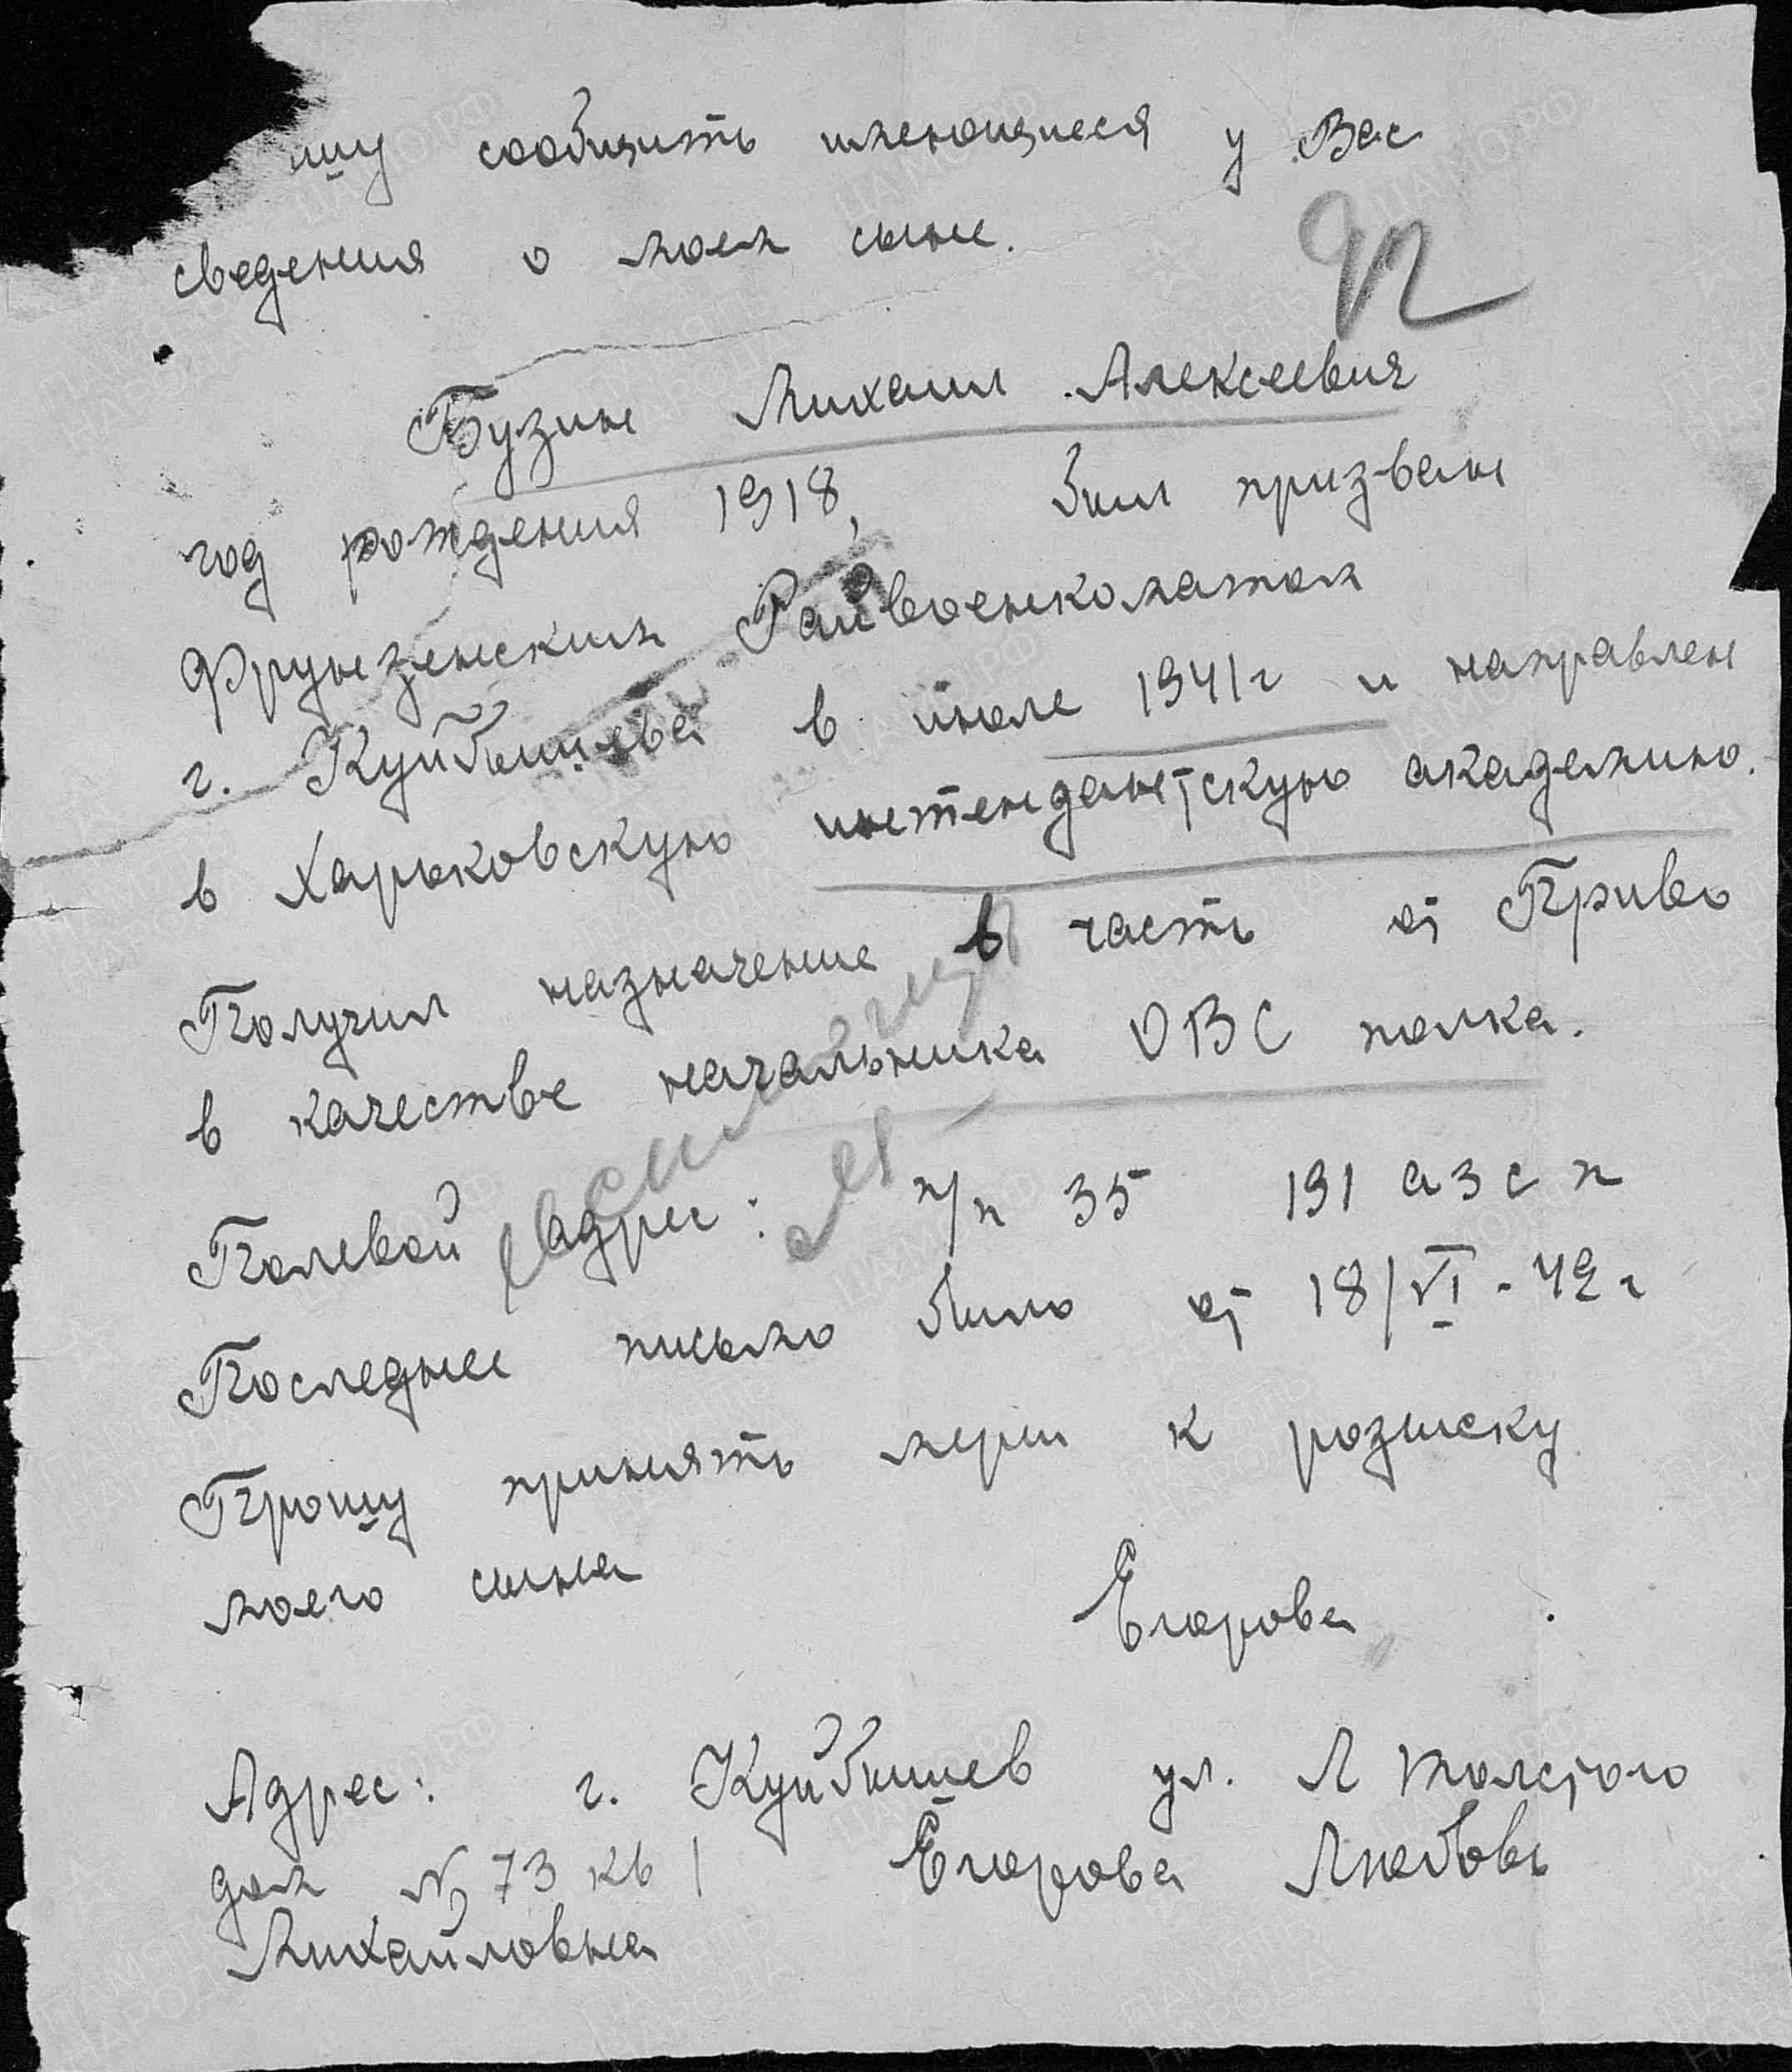 шу сообщить имеющиеся у Вас
сведения о моем сыне.
92
Бузин Михаил Алексеевич
год рождения 1918, был призван
Фрунзенским Райвоенкоматом
г. Куйбышева в июле 1941 г и направлен
в Харьковскую интендантскую академию.
Получил назначение в часть от Приво
в качестве начальника ОВС полка.
Полевой адрес: п/п 35 191 азсп
Последнее письмо было от 18/VI-42 г
Прошу принять меры к розыску
моего сына
Егорова
Адрес: г. Куйбышев ул. Л Толстого
дом № 73 кв 1 Егорова Любовь
Михайловна